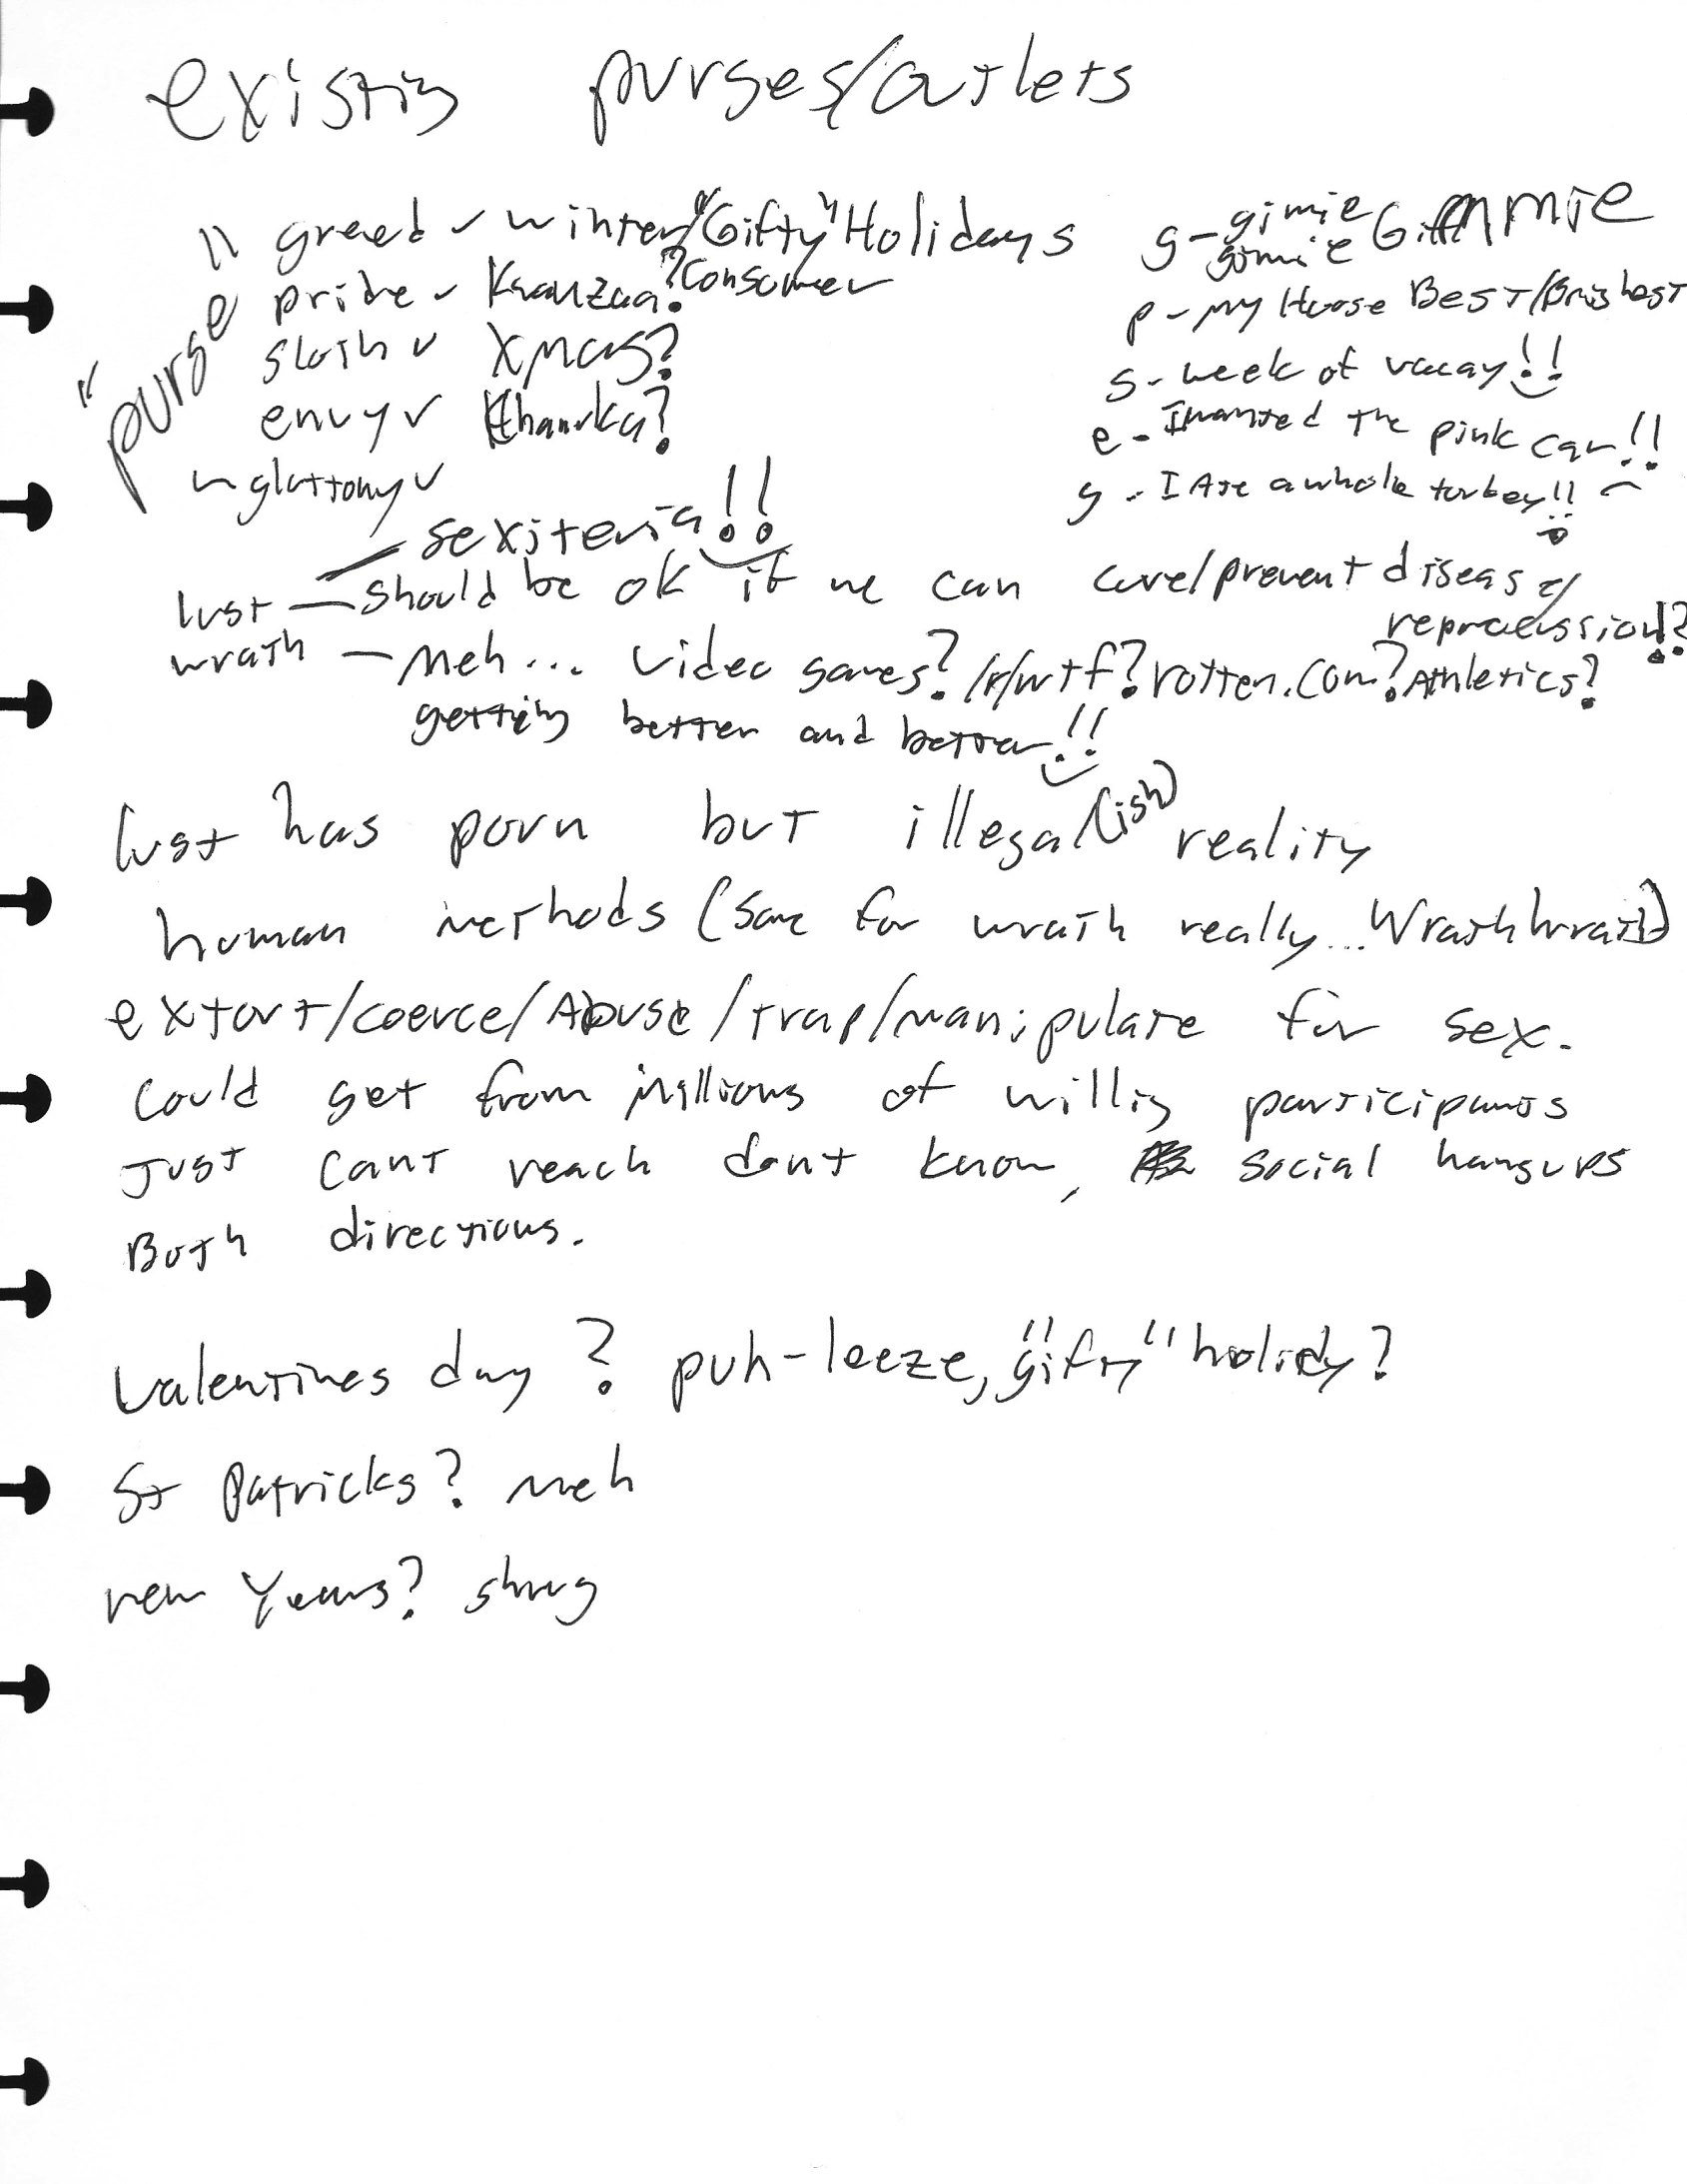 existing purges/outlets
"purge"
greed ✓ winter "Gifty" Holidays
pride ✓ Kwanzaa? Consumer
sloth ✓ Xmas?
envy ✓ Khanuka?
gluttony ✓
g - gimie gimie Gimmie
p - my House Best/Brighest
s - week of vacay!!
e - I wanted the pink car!!
g - I Ate a whole turkey!!
sexiteria!!
lust — should be ok if we can cure/prevent disease/
reprocussion!?
wrath — Meh... video games? /r/wtf? rotten.com? Athletics?
getting better and better!!
lust has porn but illegal(ish) reality
human methods (same for wrath really... Wrath wrath)
extort/coerce/Abuse/trap/manipulate for sex.
Could get from millions of willing participants
Just cant reach dont know, social hangups
Both directions.
Valentines day? puh-leeze, "gifty" holidy?
St Patricks? meh
new Years? shrug